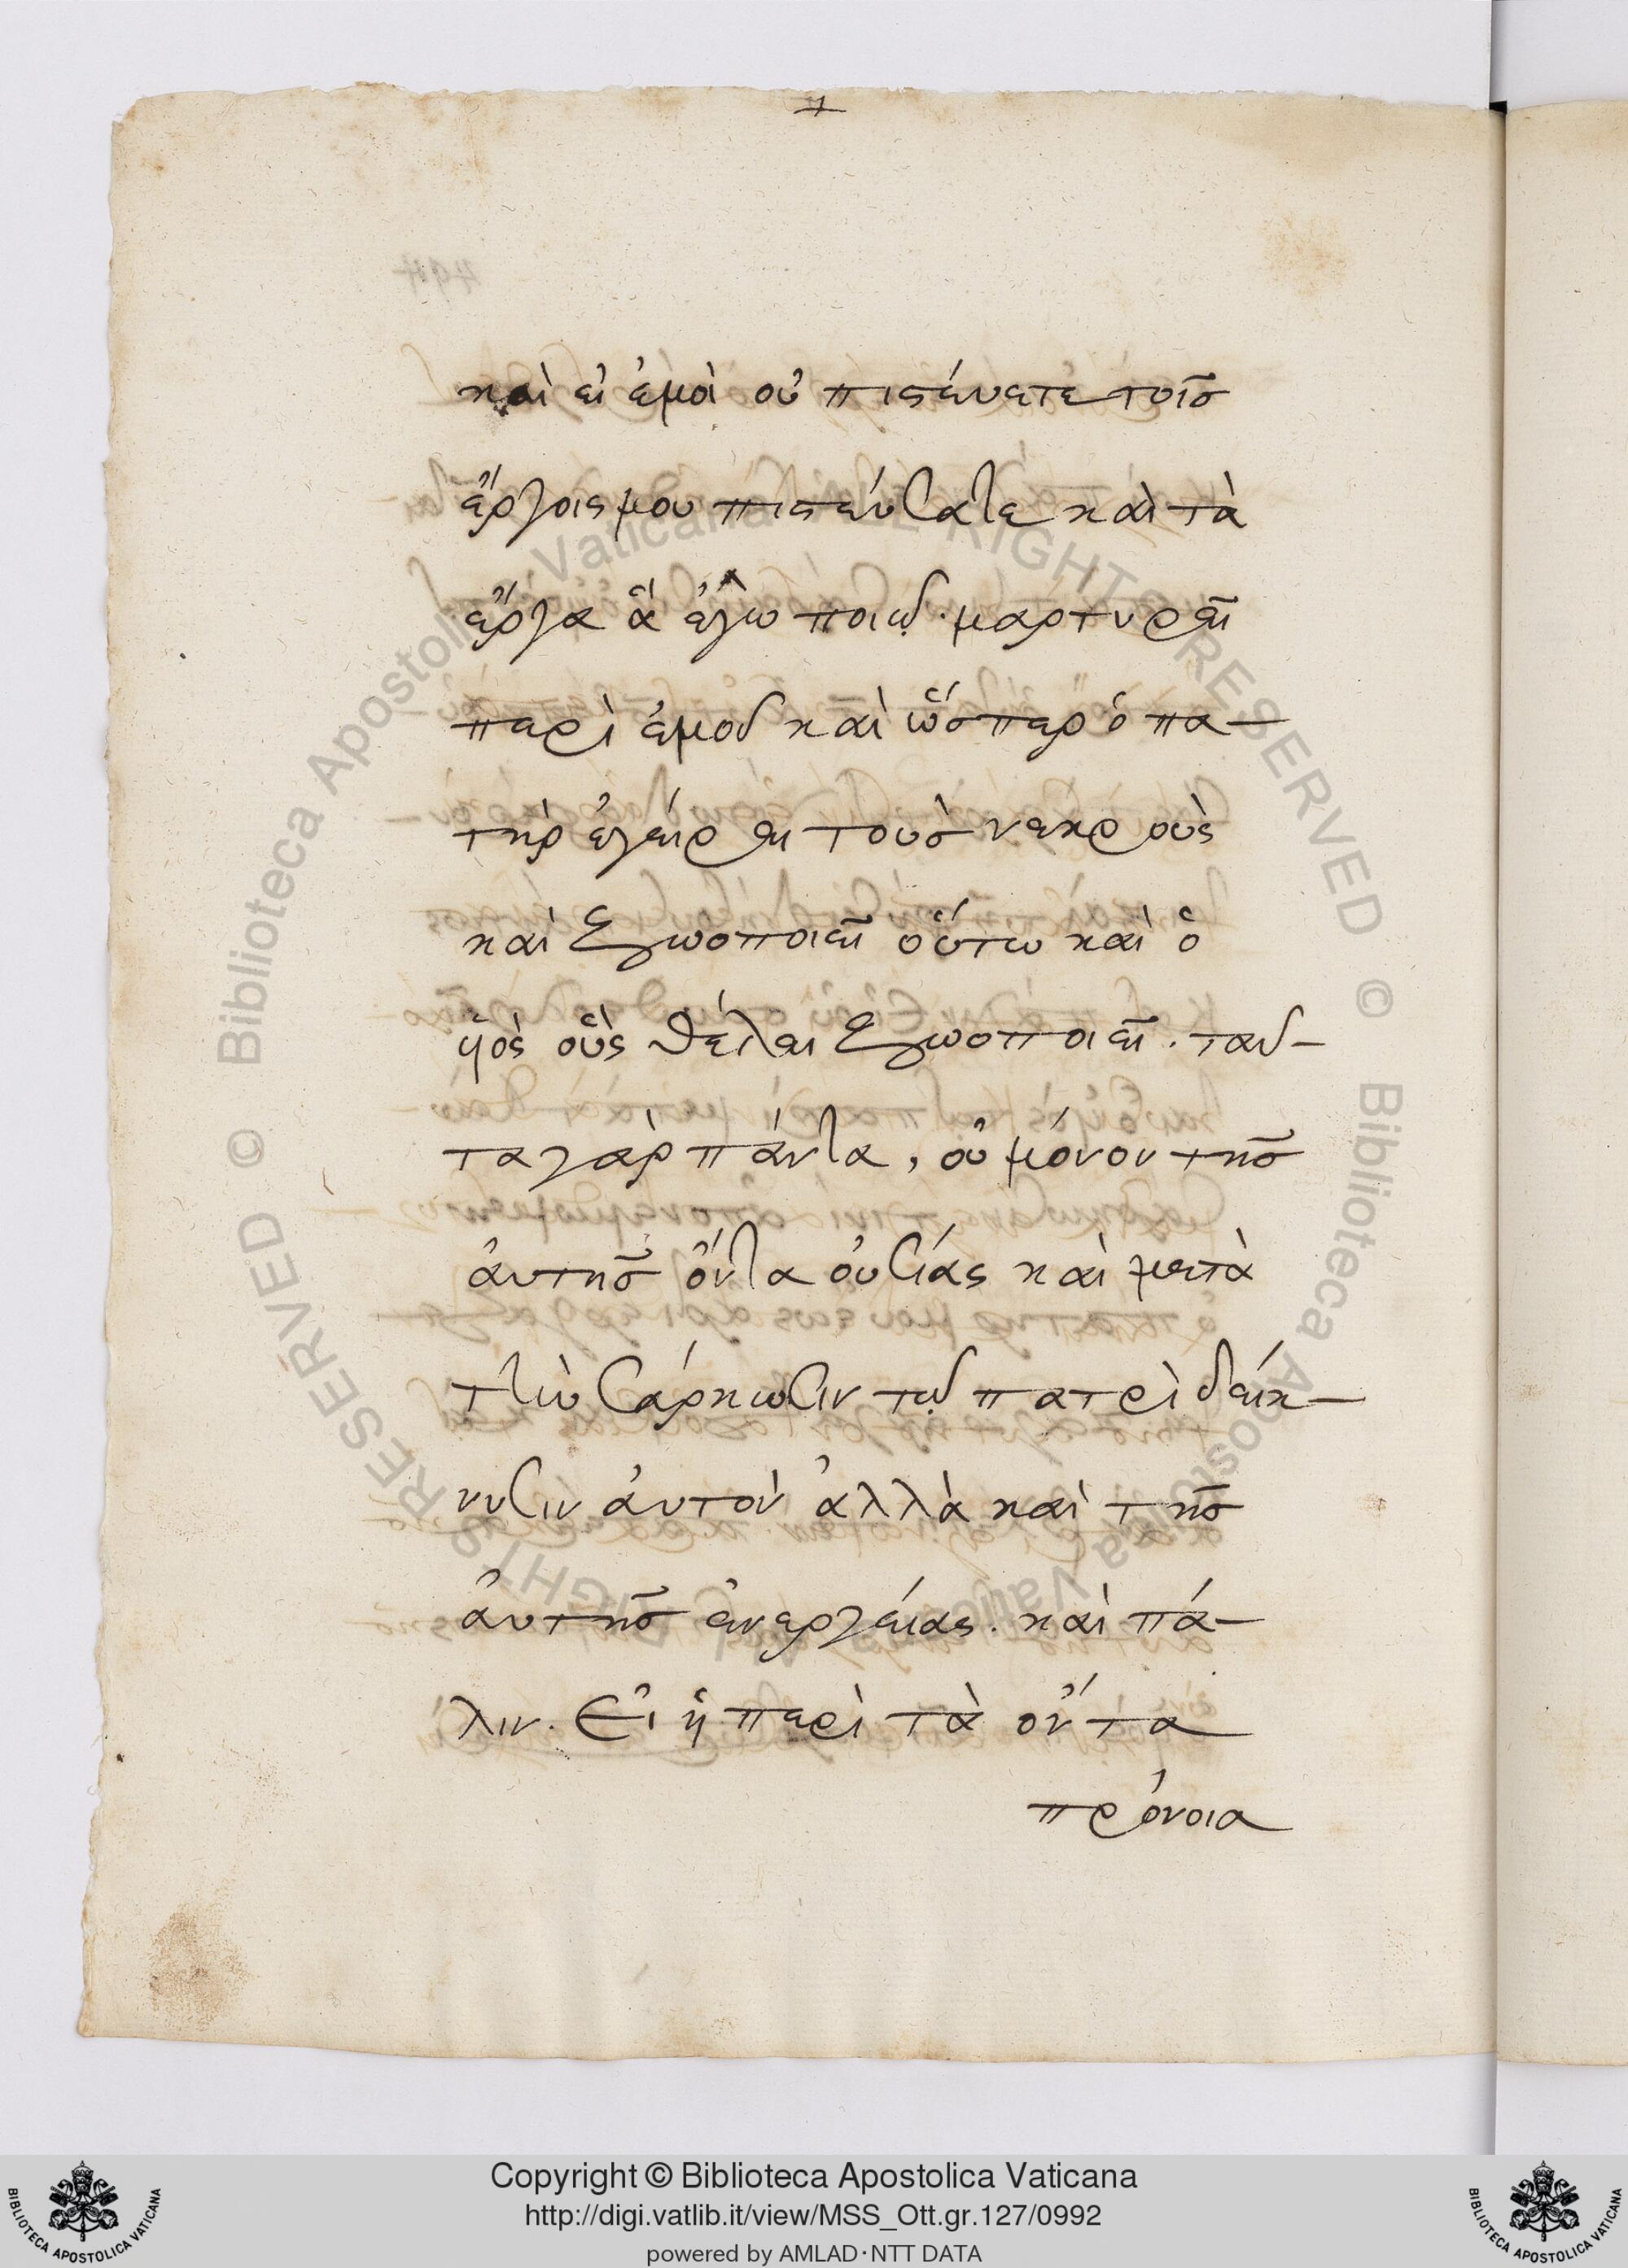 καὶ εἰ ἐμοὶ οὐ πιστεύετε τοῖς
ἔργοις μου πιστεύσατε καὶ τὰ
ἔργα ἃ ἐγὼ ποιῶ· μαρτυρεῖ
περὶ ἐμοῦ καὶ ὥσπερ ὁ πα-
τὴρ ἐγείρει τοὺς νεκροὺς
καὶ ζωοποιεῖ οὕτω καὶ ὁ
ὑὸς οὓς θέλει ζωοποιεῖ. ταῦ-
τα γὰρ πάντα, οὐ μόνον τῆς
ἀυτῆς ὄντα οὐσίας καὶ μετὰ
τὴν σάρκωσιν τῷ πατρὶ δείκ-
νυσιν ἀυτὸν ἀλλὰ καὶ τῆς
ἀυτῆς ἐνεργείας. καὶ πά-
λιν. Εἰ ἡ περὶ τὰ ὄντα
πρόνοια
Copyright © Biblioteca Apostolica Vaticana
http://digi.vatlib.it/view/MSS_Ott.gr.127/0992
powered by AMLAD·NTT DATA
BIBLIOTECA APOSTOLICA VATICANA
BIBLIOTECA APOSTOLICA VATICANA